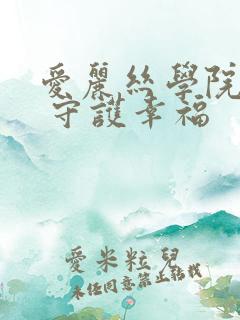 愛麗絲學院
守護幸福
愛米粒兒
未經同意禁止轉載